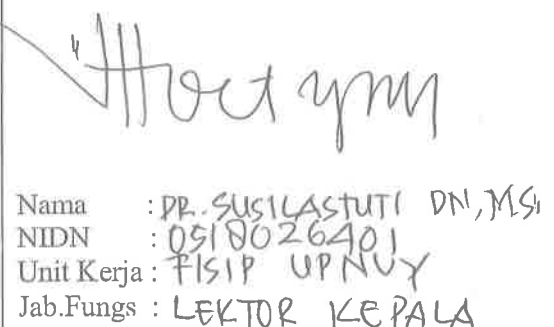 Nama : DR. SUSILASTUTI DN, M.Si
NIDN : 0518026401
Unit Kerja : FISIP UPNVY
Jab.Fungs : LEKTOR KEPALA